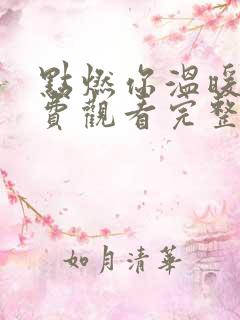 點燃你溫暖
費觀看完整
如月清華